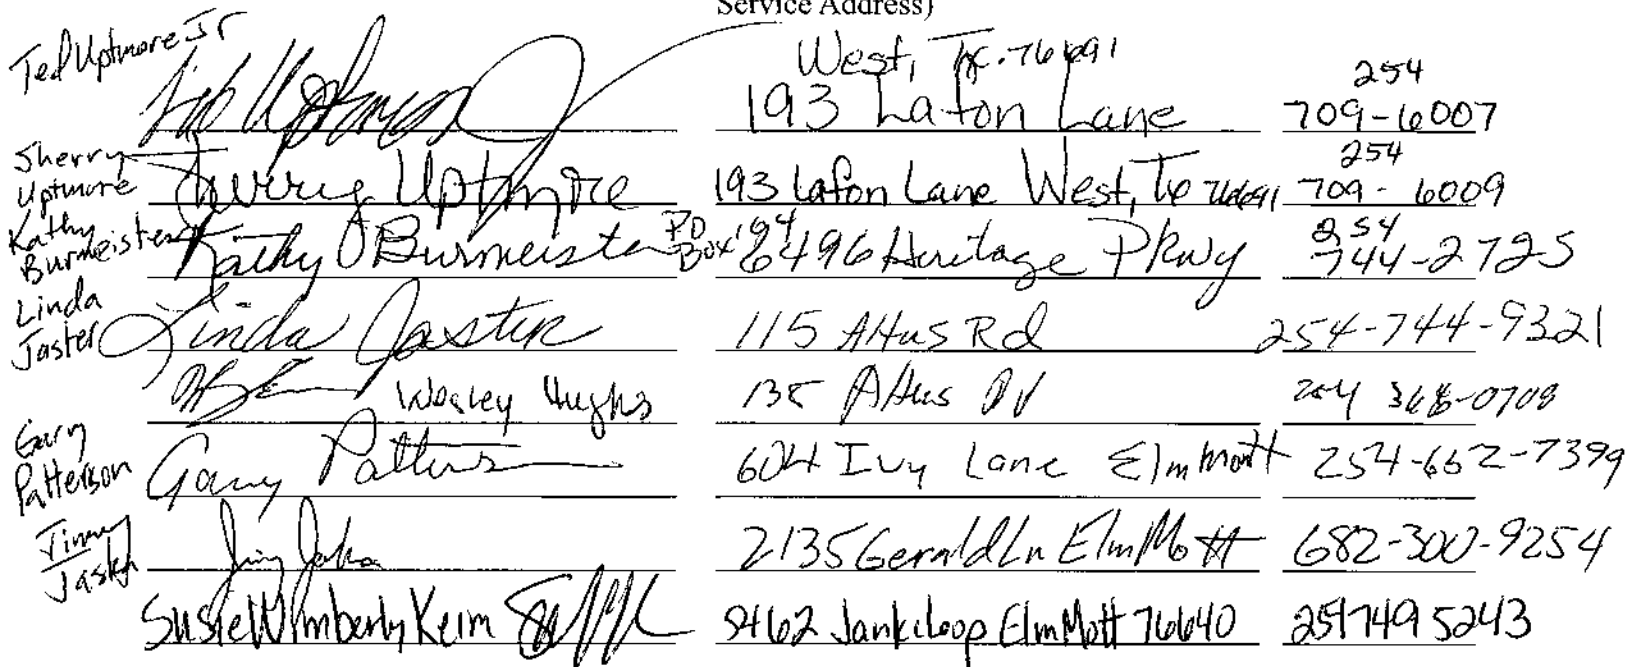 Service Address)
Ted Uptmore Jr West, Tx. 76691 254
193 Lafon Lane 709-6007
Sherry Uptmore Sherry Uptmore 193 Lafon Lane West, Tx 76691 254 709-6009
Kathy Burmeister Kathy Burmeister PO Box 194 6496 Heritage Pkwy 254 744-2725
Linda Jaster Linda Jaster 115 Altus Rd 254-744-9321
Wesley Hughs 135 Altus 254 368-0708
Gary Patterson Gary Patterson 604 Ivy Lane Elm Mott 254-652-7399
Jimmy 2135 Gerald Ln Elm Mott 682-300-9254
Susie Wimberly Keim Loop Elm Mott 76640 2547495243